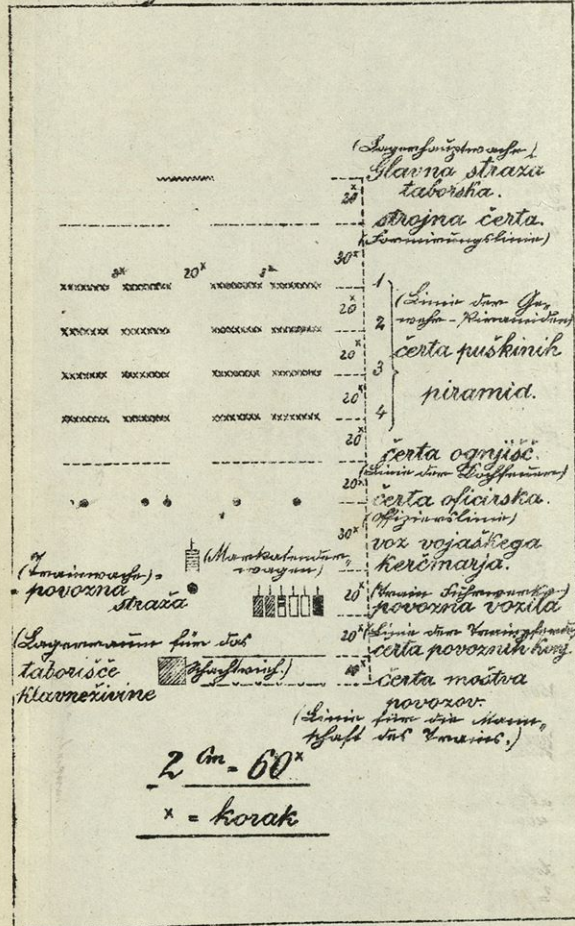 (Lagerhauptwache)
Glavna straža
taborska.
20x
strojna čerta.
(Formirungslinie)
30x
8x 20x 8x
1
20x
(Linie der Ge-
2
wehr-Piramiden)
20x
čerta puškinih
3
piramid.
20x
4
20x
čerta ognjišč.
(Linie der Kochfeuer)
20x
čerta oficirska.
(Offizierslinie)
30x
voz vojaškega
kerčmarja.
(Marketender-
wagen)
(Trainwache) =
povozna
straža
20x
(Train Fuhrwerke)
povozna vozila
20x
(Linie der Trainpferde)
čerta povoznih konj.
(Lagerraum für das
taborišče
Schlachtvieh.)
klavne živine
čerta moštva
povozov.
(Linie für die Mann-
schaft des Trains.)
2 Cm = 60x
x = korak